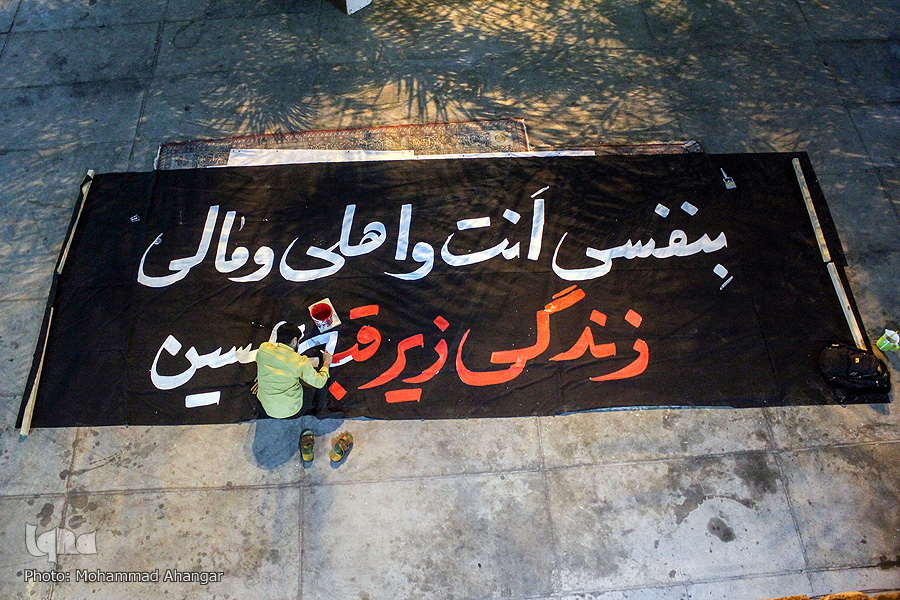 بِنفسی اَنت و اهلی و مالی
زندگی زیر قبهٔ حسین
Iqna
Photo: Mohammad Ahangar